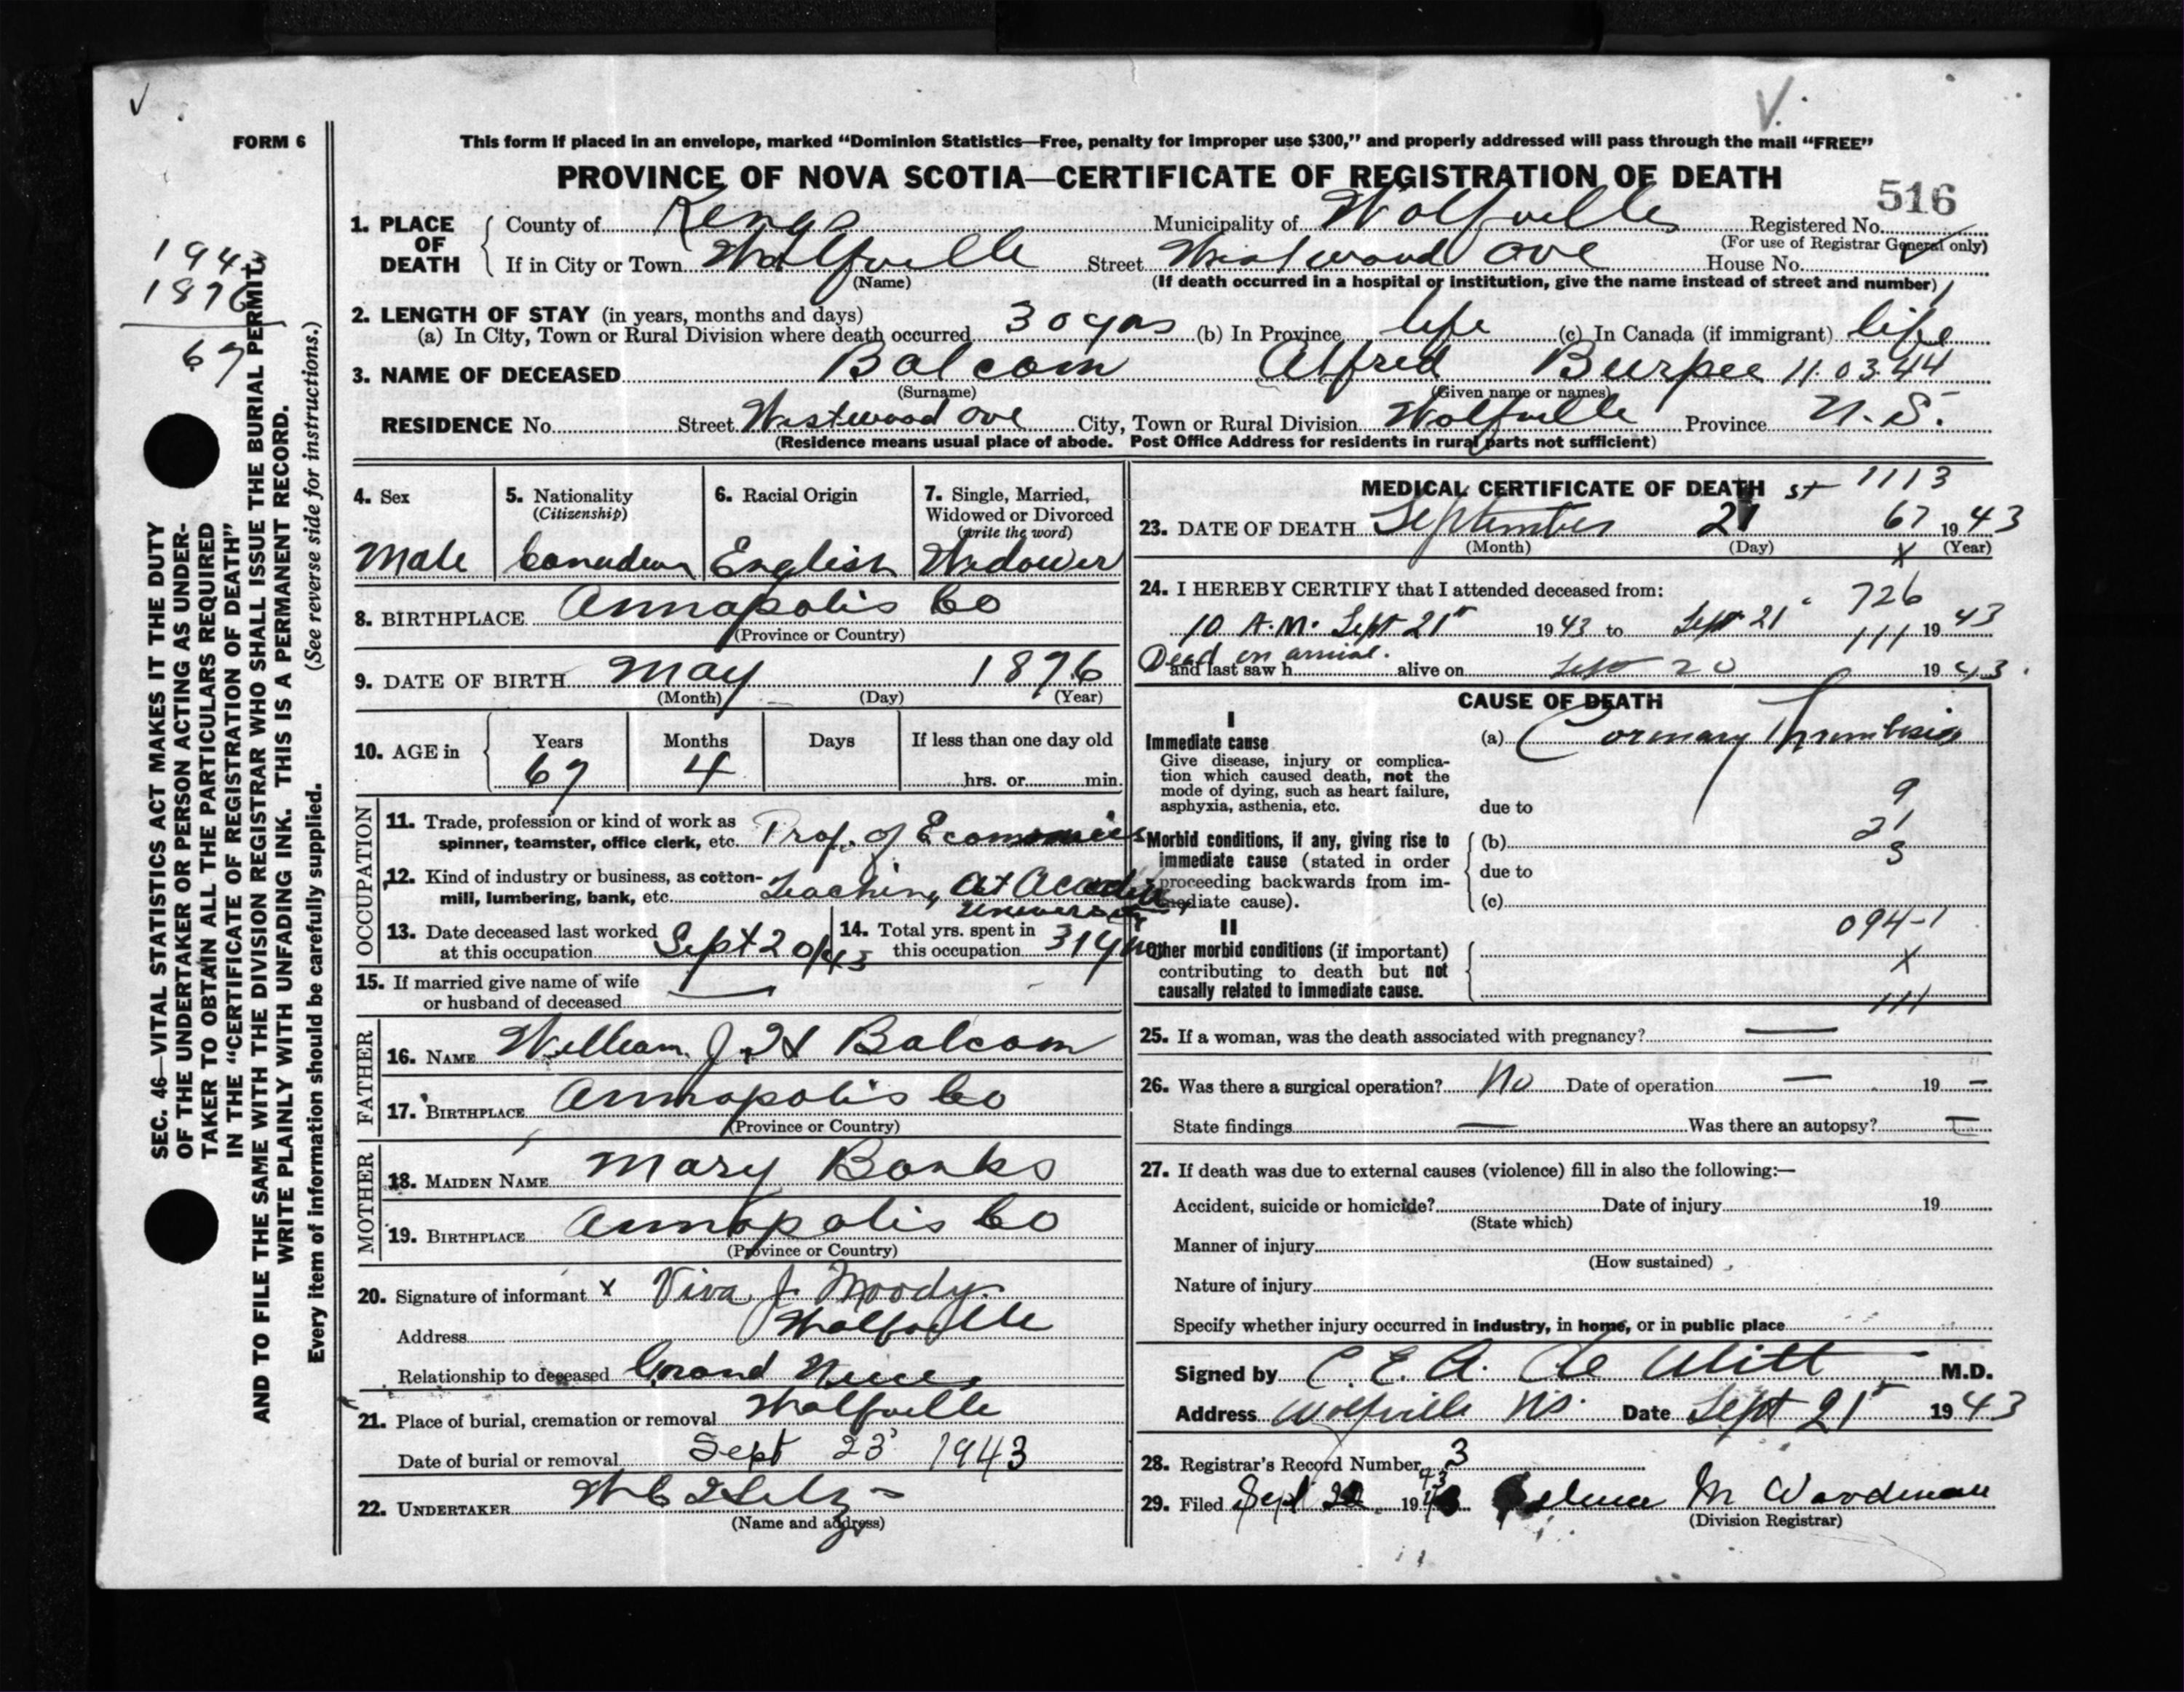 FORM 6
This form if placed in an envelope, marked "Dominion Statistics—Free, penalty for improper use $300," and properly addressed will pass through the mail "FREE"
PROVINCE OF NOVA SCOTIA—CERTIFICATE OF REGISTRATION OF DEATH
516
1. PLACE OF DEATH
County of Kings Municipality of Wolfville Registered No.
(For use of Registrar General only)
If in City or Town Wolfville Street Westwood Ave House No.
(Name) (If death occurred in a hospital or institution, give the name instead of street and number)
2. LENGTH OF STAY (in years, months and days)
(a) In City, Town or Rural Division where death occurred 30 yrs (b) In Province life (c) In Canada (if immigrant) life
3. NAME OF DECEASED Balcom Alfred Burpee 11.03.44
(Surname) (Given name or names)
RESIDENCE No. Street Westwood Ave City, Town or Rural Division Wolfville Province N.S.
(Residence means usual place of abode. Post Office Address for residents in rural parts not sufficient)
1943
1876
67
SEC. 46—VITAL STATISTICS ACT MAKES IT THE DUTY
OF THE UNDERTAKER OR PERSON ACTING AS UNDER-
TAKER TO OBTAIN ALL THE PARTICULARS REQUIRED
IN THE "CERTIFICATE OF REGISTRATION OF DEATH"
AND TO FILE THE SAME WITH THE DIVISION REGISTRAR WHO SHALL ISSUE THE BURIAL PERMIT.
WRITE PLAINLY WITH UNFADING INK. THIS IS A PERMANENT RECORD.
Every item of information should be carefully supplied. (See reverse side for instructions.)
4. Sex
Male
5. Nationality
(Citizenship)
Canadian
6. Racial Origin
English
7. Single, Married,
Widowed or Divorced
(write the word)
Widower
8. BIRTHPLACE Annapolis Co
(Province or Country)
9. DATE OF BIRTH May 1876
(Month) (Day) (Year)
10. AGE in Years Months Days If less than one day old
67 4 hrs. or min.
OCCUPATION
11. Trade, profession or kind of work as
spinner, teamster, office clerk, etc. Prof. of Economics
12. Kind of industry or business, as cotton-
mill, lumbering, bank, etc. Teaching at Acadia
University
13. Date deceased last worked
at this occupation Sept 20/43
14. Total yrs. spent in
this occupation 31 yrs
15. If married give name of wife
or husband of deceased
FATHER
16. NAME William J. H Balcom
17. BIRTHPLACE Annapolis Co
(Province or Country)
MOTHER
18. MAIDEN NAME Mary Banks
19. BIRTHPLACE Annapolis Co
(Province or Country)
20. Signature of informant x Viva J. Moody
Address Wolfville
Relationship to deceased Grand Niece
21. Place of burial, cremation or removal Wolfville
Date of burial or removal Sept 23 1943
22. UNDERTAKER
(Name and address)
MEDICAL CERTIFICATE OF DEATH
1113
23. DATE OF DEATH September 21 st 67 1943
(Month) (Day) x (Year)
24. I HEREBY CERTIFY that I attended deceased from:
726
10 A.M. Sept 21st 1943 to Sept 21 1943
111
Dead on arrival.
and last saw h alive on Sept 20 1943.
CAUSE OF DEATH
I
Immediate cause
Give disease, injury or complica-
tion which caused death, not the
mode of dying, such as heart failure,
asphyxia, asthenia, etc.
(a) Coronary Thrombosis
due to
9
21
3
Morbid conditions, if any, giving rise to
immediate cause (stated in order
proceeding backwards from im-
mediate cause).
(b)
due to
(c)
II
Other morbid conditions (if important)
contributing to death but not
causally related to immediate cause.
094-1
x
111
25. If a woman, was the death associated with pregnancy? —
26. Was there a surgical operation? No Date of operation — 19 —
State findings — Was there an autopsy? —
27. If death was due to external causes (violence) fill in also the following:—
Accident, suicide or homicide? Date of injury 19
(State which)
Manner of injury
(How sustained)
Nature of injury
Specify whether injury occurred in industry, in home, or in public place
Signed by C. E. A. de Witt M.D.
Address Wolfville N.S. Date Sept 21st 1943
28. Registrar's Record Number 3
29. Filed Sept 1943 M Woodman
(Division Registrar)